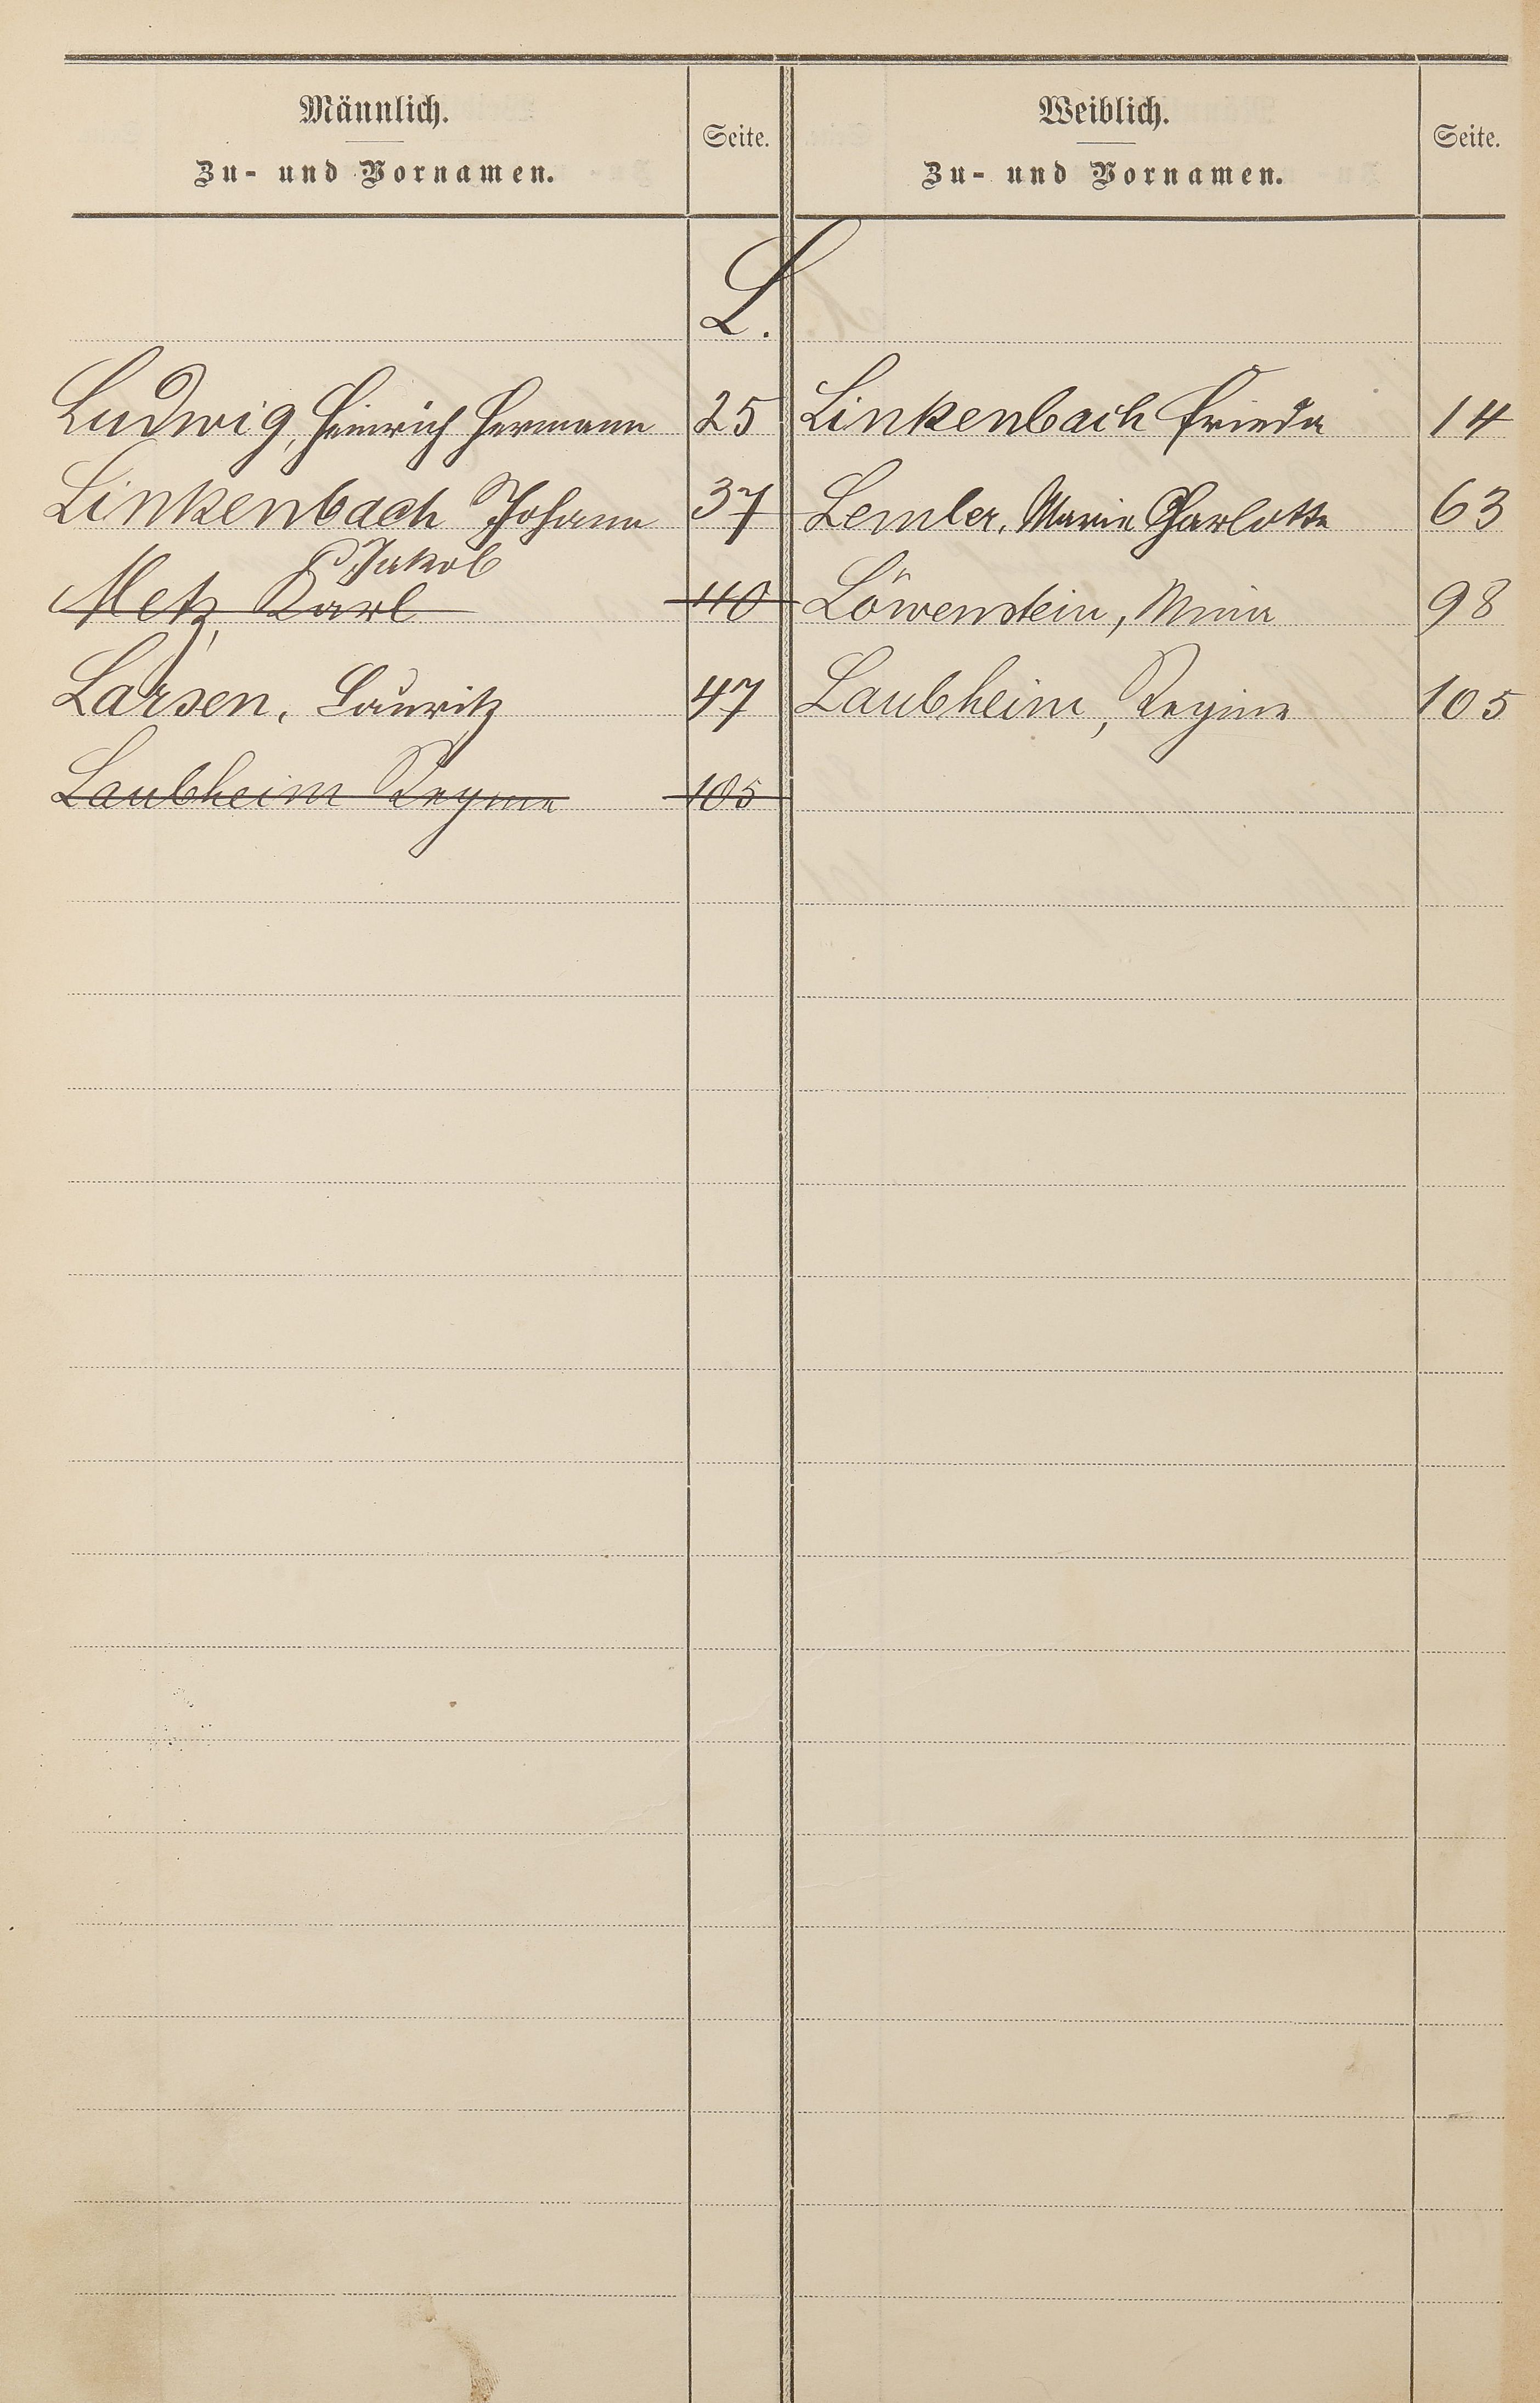 Männlich.
Zu- und Vornamen.
Seite.
Weiblich.
Zu- und Vornamen.
Seite.
L.
Ludwig, Heinrich Hermann 25
Linkenbach Johann 37
Jakob
Metz, Karl 40
Larsen, Lauritz 47
Laubheim Regine 105
Linkenbach Frieda 14
Lemler, Marie Charlotte 63
Löwenstein, Mina 98
Laubheim, Regine 105